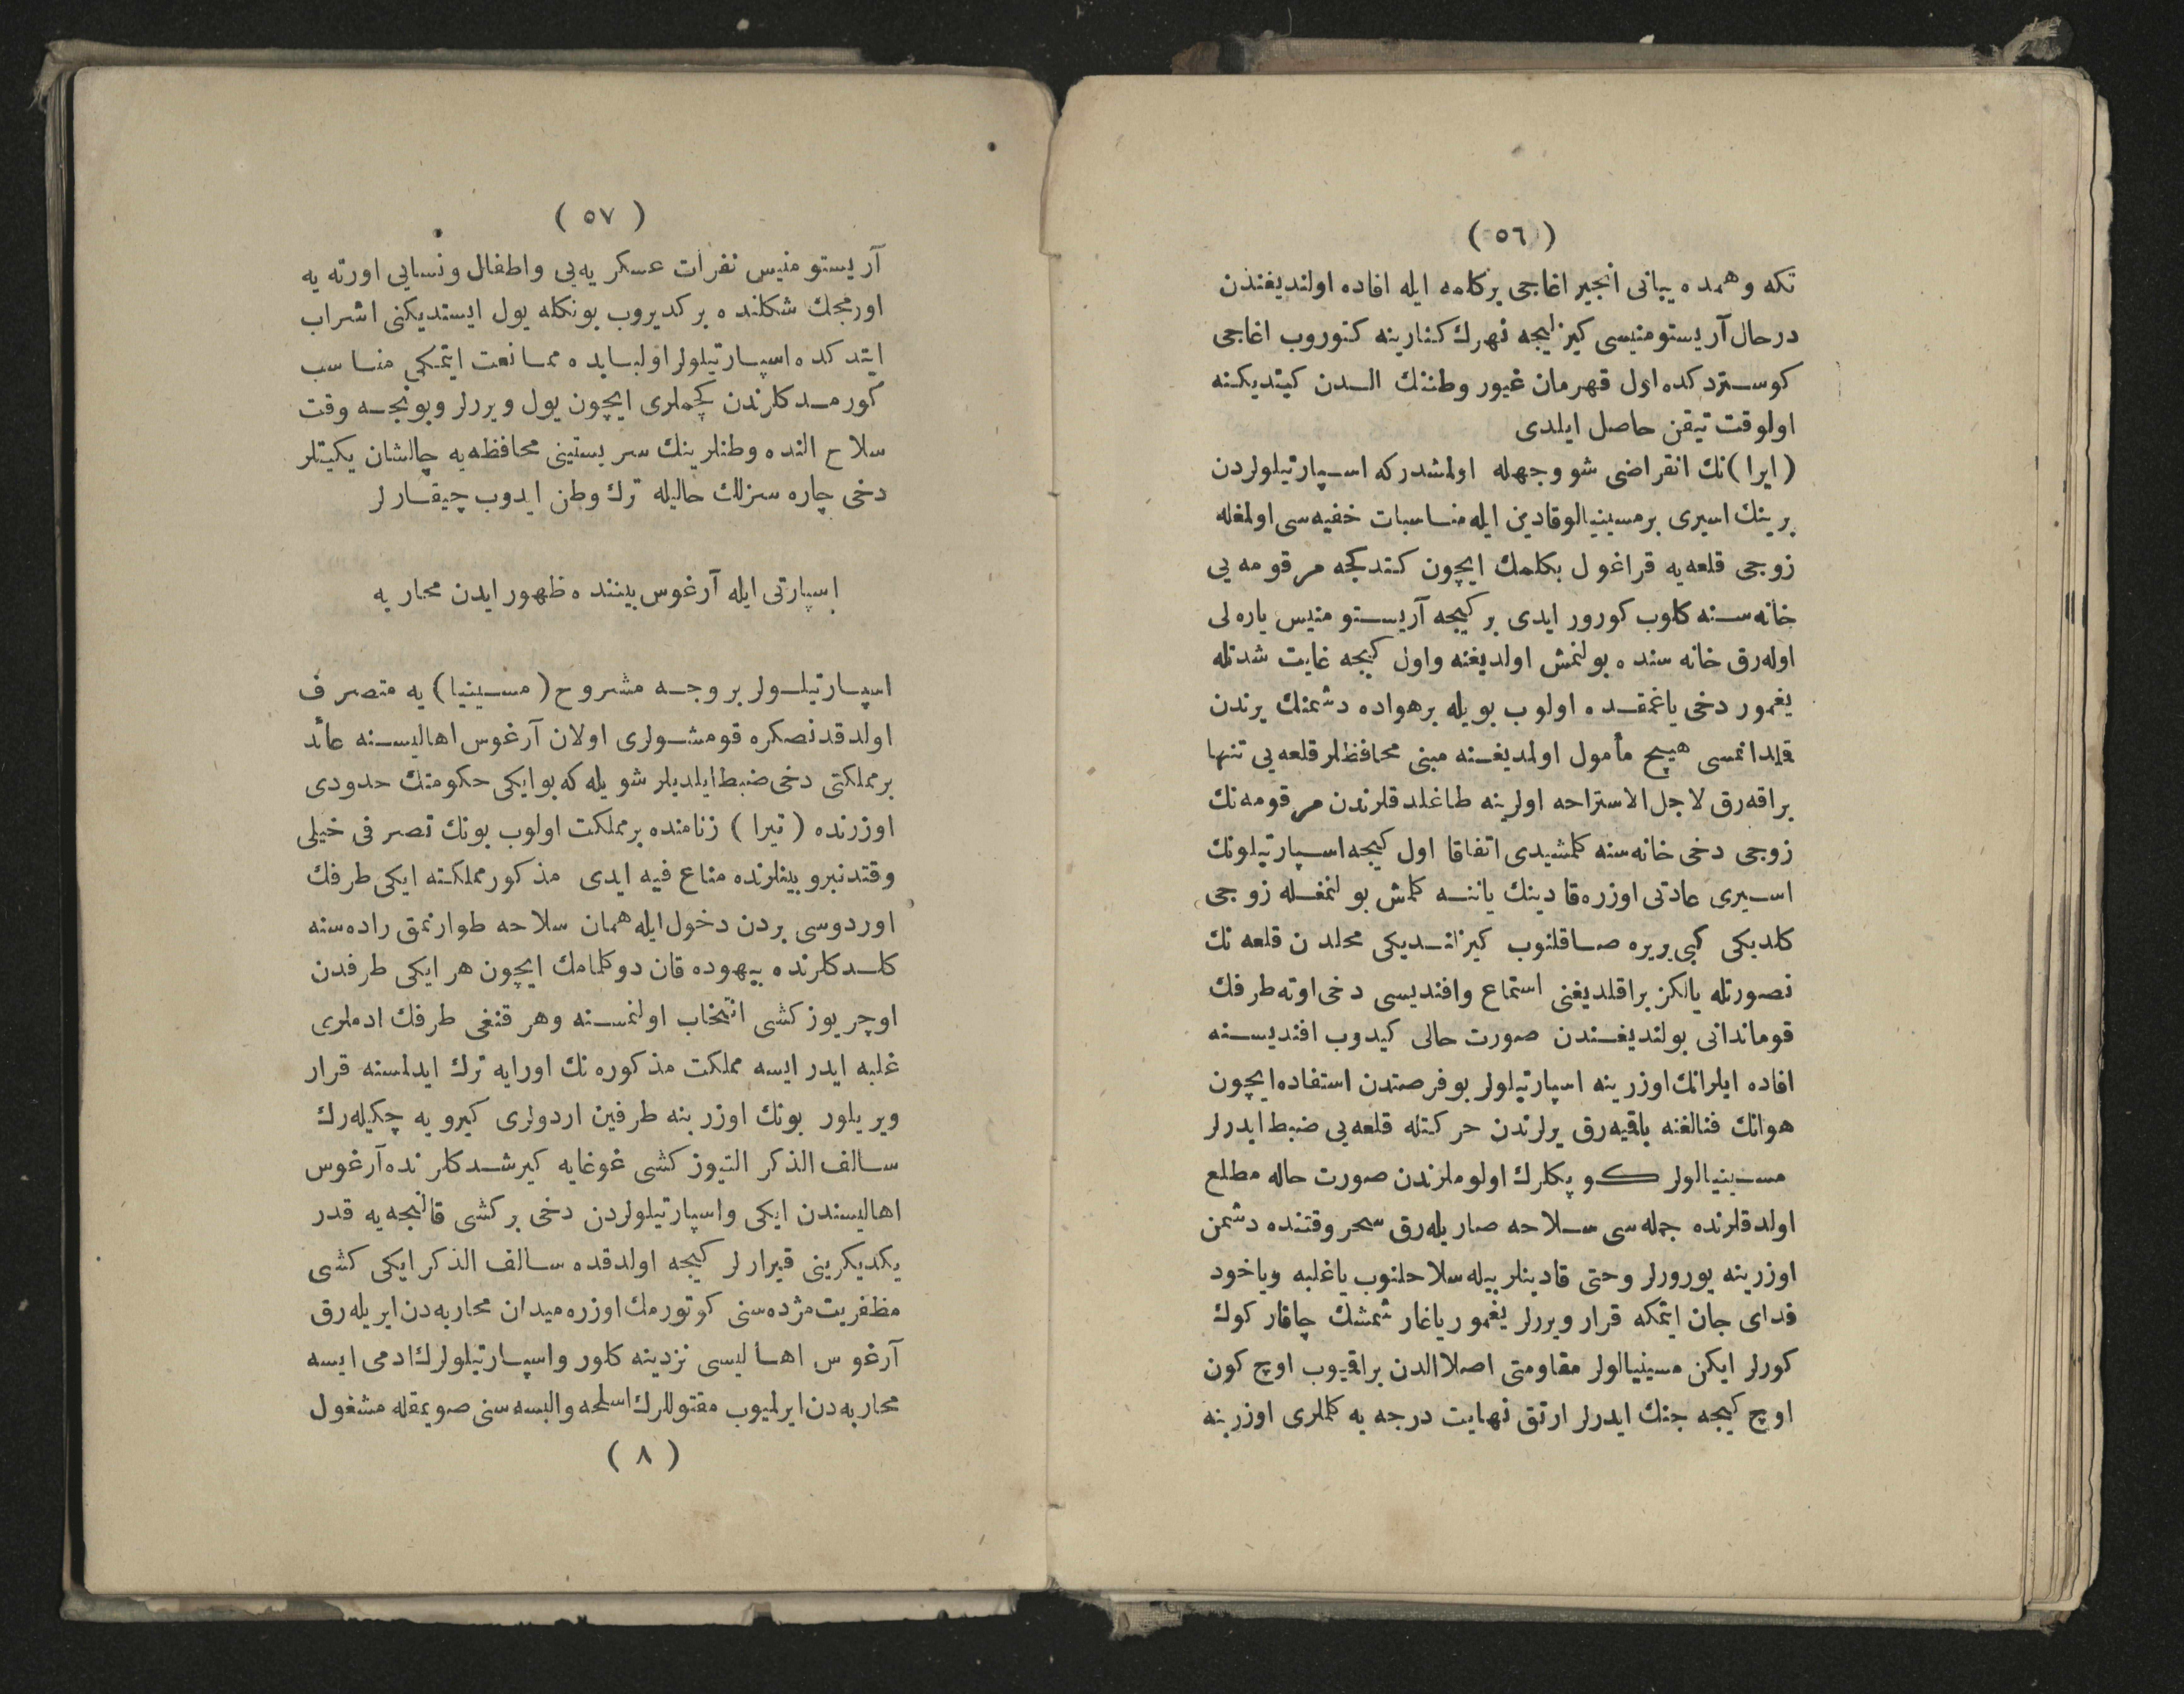 (٥٦)
تكه وهمده يبانى انجير اغاجى بركلمه ايله افاده اولنديغندن
درحال آريستومنيسى كيزليجه نهرك كنارينه كتوروب اغاجى
كوستردكده اول قهرمان غيور وطننك الدن كيتديكنه
اولوقت تيقن حاصل ايلدى
(ايرا) نك انقراضى شو وجهله اولمشدركه اسپارتيلولردن
برينك اسيرى برمسينيالوقادين ايله مناسبات خفيه سى اولمغله
زوجى قلعه يه قراغول بكلمك ايچون كتدكجه مرقومه يى
خانه سنه كلوب كورور ايدى بر كيجه آريستو منيس ياره لى
اوله رق خانه سنده بولنمش اولديغنه واول كيجه غايت شدتله
يغمور دخى ياغمقده اولوب بويله برهواده دشمنك يرندن
قلدانمسى هيچ مأمول اولمديغنه مبنى محافظلر قلعه يى تنها
براقه رق لاجل الاستراحه اولرينه طاغلدقلرندن مرقومه نك
زوجى دخى خانه سنه كلمشيدى اتفاقا اول كيجه اسپارتيلونك
اسيرى عادتى اوزره قادينك ياننه كلمش بولنمغله زوجى
كلديكى كبى بريره صاقلنوب كيزلنديكى محلدن قلعه نك
نصورتله يالكز براقلديغنى استماع وافنديسى دخى اوته طرفك
قوماندانى بولنديغندن صورت حالى كيدوب افنديسنه
افاده ايلر انك اوزرينه اسپارتيلولر بوفرصتدن استفاده ايچون
هوانك فنالغنه باقيه رق يرلرندن حركتله قلعه يى ضبط ايدرلر
مسينيالولر كوپكلرك اولوملرندن صورت حاله مطلع
اولدقلرنده جمله سى سلاحه صاريله رق سحر وقتنده دشمن
اوزرينه يورورلر وحتى قادينلر بيله سلاحلنوب ياغلبه وياخود
فداى جان ايتمكه قرار ويررلر يغمور ياغار شمشك چاقار كوك
كورلر ايكن مسينيالولر مقاومتى اصلا الدن براقيوب اوچ كون
اوچ كيجه جنك ايدرلر ارتق نهايت درجه يه كلملرى اوزرينه
(٥٧)
آريستو منيس نفرات عسكريه يى واطفال ونسايى اورته يه
اورمجك شكلنده بركديروب بونكله يول ايستديكنى اشراب
ايتدكده اسپارتيلولر اولبابده ممانعت ايتمكى مناسب
كورمدكلرندن كچملرى ايچون يول ويررلر وبونجه وقت
سلاح النده وطنلرينك سربستينى محافظه يه چالشان يكيتلر
دخى چاره سزلك حاليله ترك وطن ايدوب چيقارلر
اسپارتى ايله آرغوس بيننده ظهور ايدن محاربه
اسپارتيلولر بروجه مشروح (مسينيا) يه متصرف
اولدقدنصكره قومشولرى اولان آرغوس اهاليسنه عائد
برمملكتى دخى ضبط ايلديلر شويله كه بوايكى حكومتك حدودى
اوزرنده (تيرا) زنامنده برمملكت اولوب بونك تصرفى خيلى
وقتدنبرو بينلرنده منازع فيه ايدى مذكور مملكته ايكى طرفك
اوردوسى بردن دخول ايله همان سلاحه طوارنمق راده سنه
كلدكلرنده بيهوده قان دوكلمامك ايچون هر ايكى طرفدن
اوچر يوز كشى انتخاب اولنمسنه وهر قنغى طرفك ادملرى
غلبه ايدر ايسه مملكت مذكوره نك اورايه ترك ايدلمسنه قرار
ويريلور بونك اوزرينه طرفين اردولرى كيرويه چكيله رك
سالف الذكر التيوز كشى غوغايه كيرشدكلرنده آرغوس
اهاليسندن ايكى واسپارتيلولردن دخى بركشى قالنجه يه قدر
يكديكرينى قيرارلر كيجه اولدقده سالف الذكر ايكى كشى
مظفريت مژده سنى كوتورمك اوزره ميدان محاربه دن ايريله رق
آرغوس اهاليسى نزدينه كلور واسپارتيلولرك ادمى ايسه
محاربه دن ايرلميوب مقتوللرك اسلحه والبسه سنى صويمقله مشغول
(٨)